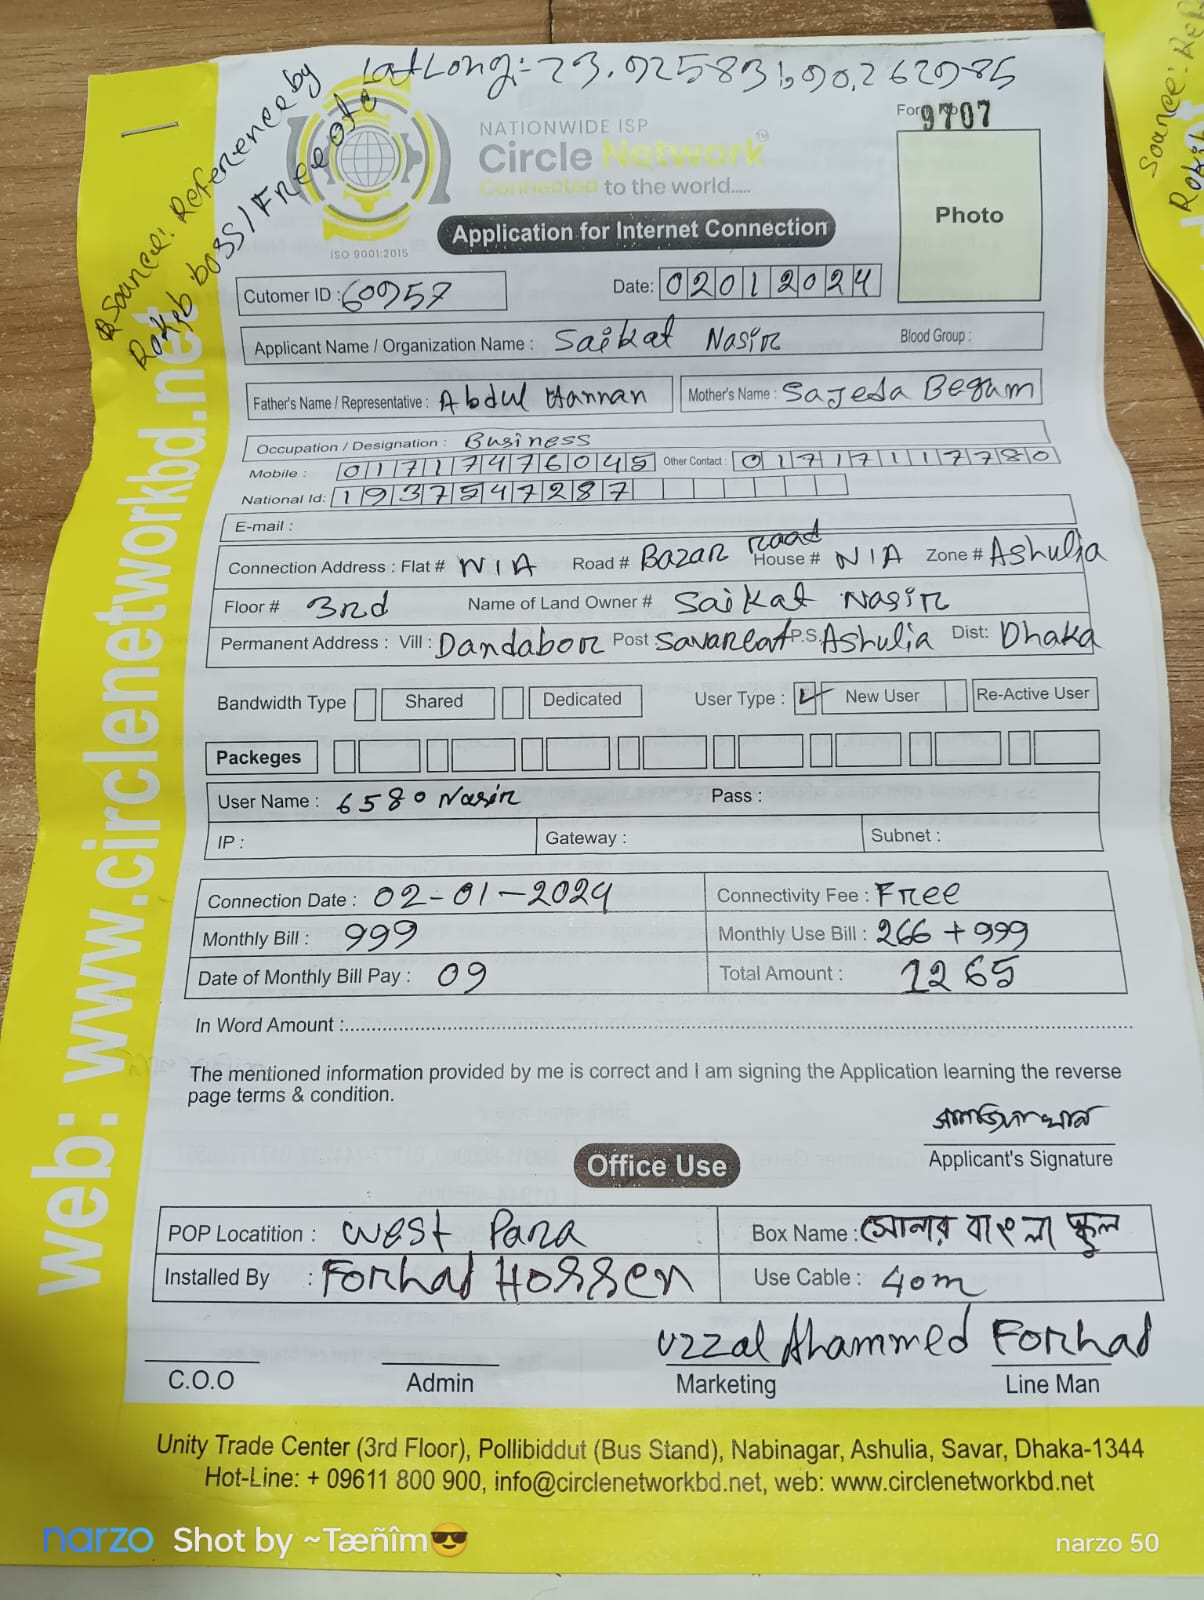 LatLong:- 23.925831,90.262985
Soancel: Reference by
Rakib boss/Free otc
Form No 9707
NATIONWIDE ISP
Circle Network
Connected to the world.....
ISO 9001:2015
Application for Internet Connection
Photo
Cutomer ID : 60957
Date: 02012024
Applicant Name / Organization Name : Saikat Nasir
Blood Group :
Father's Name / Representative : Abdul Hannan
Mother's Name : Sajeda Begum
Occupation / Designation : Business
Mobile : 01717476045 Other Contact : 01717117780
National Id: 1937547287
E-mail :
Connection Address : Flat # N/A Road # Bazar road House # N/A Zone # Ashulia
Floor # 3rd Name of Land Owner # Saikat Nasir
Permanent Address : Vill : Dandabor Post : Savarcant P.S. Ashulia Dist: Dhaka
Bandwidth Type Shared Dedicated User Type : New User Re-Active User
Packeges
User Name : 6580Nasir Pass :
IP : Gateway : Subnet :
Connection Date : 02-01-2024 Connectivity Fee : Free
Monthly Bill : 999 Monthly Use Bill : 266 + 999
Date of Monthly Bill Pay : 09 Total Amount : 1265
In Word Amount :
The mentioned information provided by me is correct and I am signing the Application learning the reverse
page terms & condition.
Applicant's Signature
Office Use
POP Locatition : West Para Box Name : সোনার বাংলা স্কুল
Installed By : Forhad Hossen Use Cable : 40m
Uzzal Ahammed Forhad
C.O.O Admin Marketing Line Man
Unity Trade Center (3rd Floor), Pollibiddut (Bus Stand), Nabinagar, Ashulia, Savar, Dhaka-1344
Hot-Line: + 09611 800 900, info@circlenetworkbd.net, web: www.circlenetworkbd.net
web: www.circlenetworkbd.net
narzo Shot by ~Tæñîm😎
narzo 50